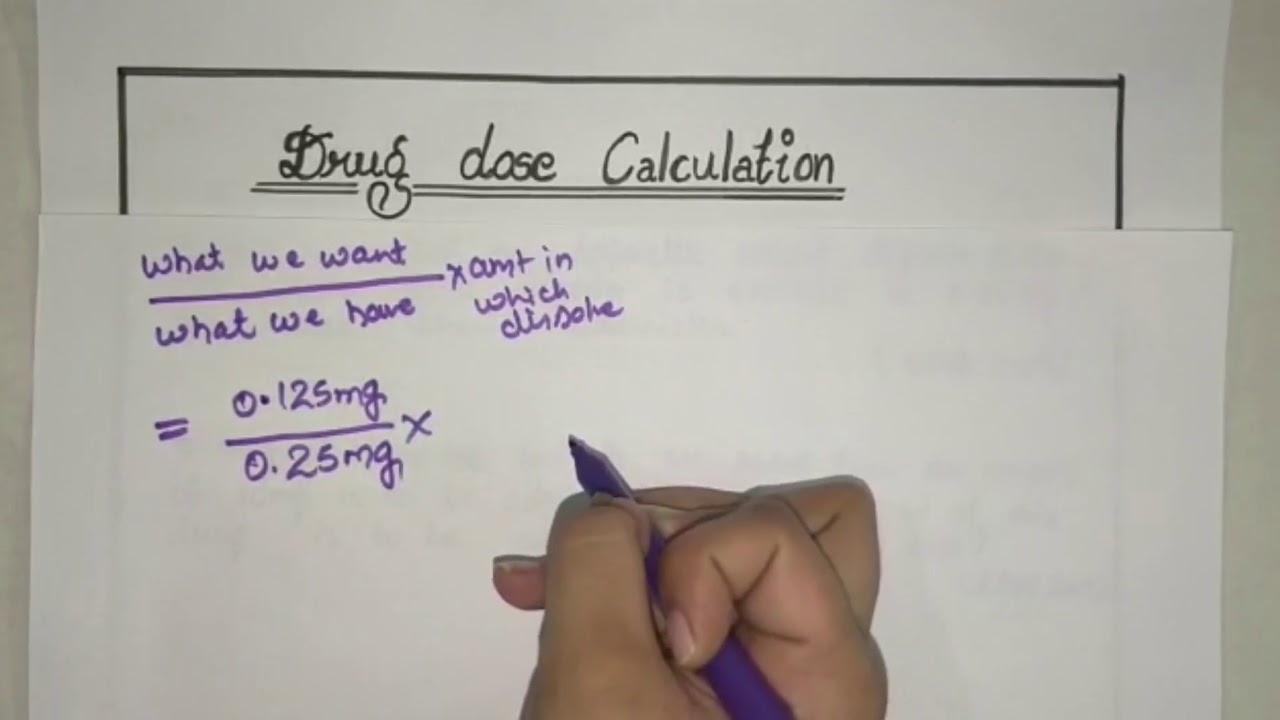 Drug dose Calculation
①
what we want
what we have
x amt in
which
dissolve
= 0.125mg
0.25mg
x